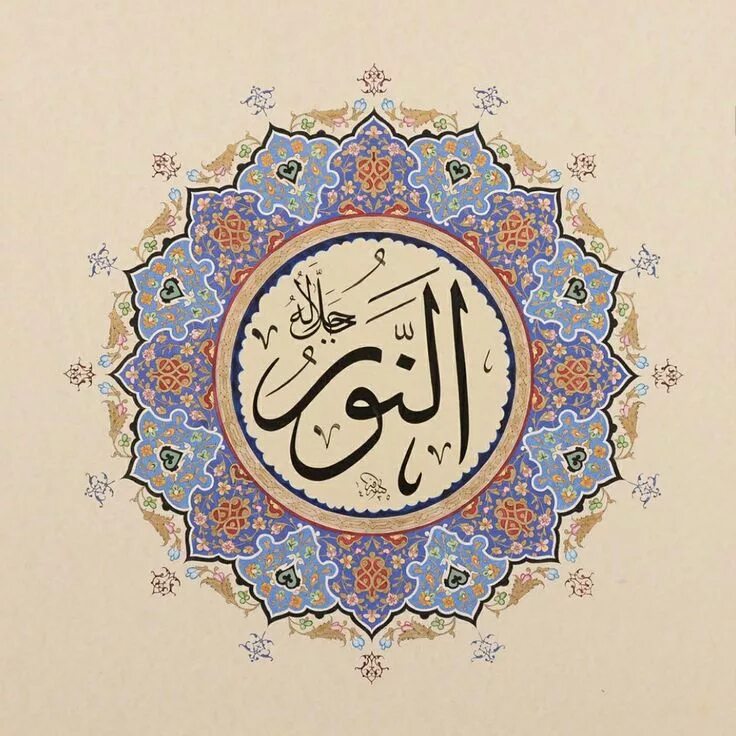 النُّور
جَلَّ جَلَالُهُ